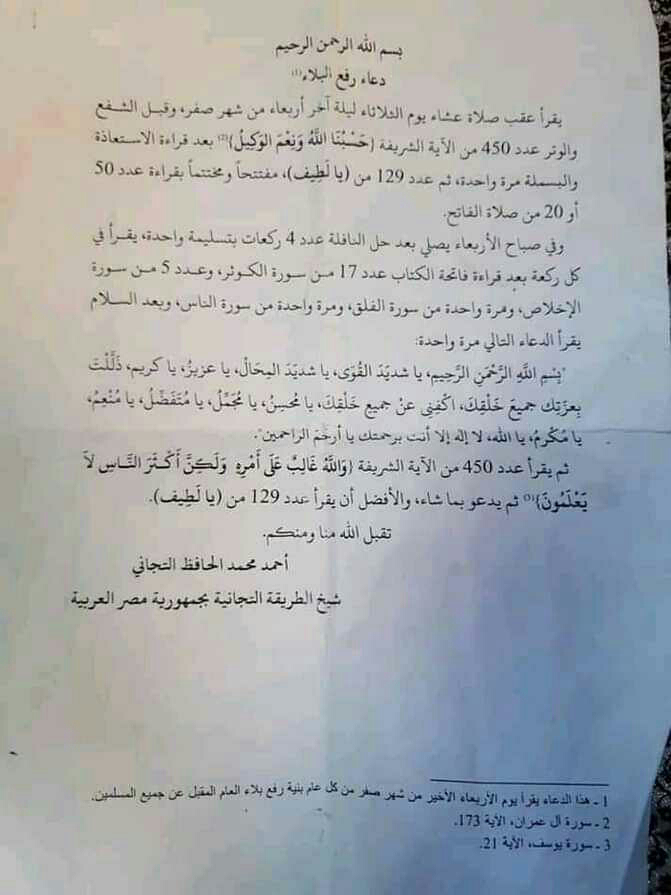 بسم الله الرحمن الرحيم
دعاء رفع البلاء(1)
يقرأ عقب صلاة عشاء يوم الثلاثاء ليلة آخر أربعاء من شهر صفر، وقبل الشفع
والوتر عدد 450 من الآية الشريفة {حَسْبُنَا اللَّهُ وَنِعْمَ الوَكِيلُ}(2) بعد قراءة الاستعاذة
والبسملة مرة واحدة، ثم عدد 129 من (يا لَطِيف)، مفتتحاً ومختتماً بقراءة عدد 50
أو 20 من صلاة الفاتح.
وفي صباح الأربعاء يصلي بعد حل النافلة عدد 4 ركعات بتسليمة واحدة، يقرأ في
كل ركعة بعد قراءة فاتحة الكتاب عدد 17 من سورة الكوثر، وعدد 5 من سورة
الإخلاص، ومرة واحدة من سورة الفلق، ومرة واحدة من سورة الناس، وبعد السلام
يقرأ الدعاء التالي مرة واحدة:
"بِسْمِ اللَّهِ الرَّحْمَنِ الرَّحِيمِ، يا شديدَ القُوَى، يا شديدَ المِحَالْ، يا عزيزُ، يا كريم، ذَلَّلْتَ
بِعزتِك جميعَ خَلْقِكَ، اكْفِنِى عنْ جميعِ خَلْقِكَ، يا مُحسِنُ، يا مُجَمِّلُ، يا مُتَفَضِّلُ، يا مُنْعِمُ،
يا مُكْرِمُ، يا الله، لا إلهَ إلا أنت برحمتك يا أرحَمَ الراحمين".
ثم يقرأ عدد 450 من الآية الشريفة {وَاللَّهُ غَالِبٌ عَلَى أَمْرِهِ وَلَكِنَّ أَكْثَرَ النَّاسِ لاَ
يَعْلَمُونَ}(3) ثم يدعو بما شاء، والأفضل أن يقرأ عدد 129 من (يا لَطِيف).
تقبل الله منا ومنكم.
أحمد محمد الحافظ التجاني
شيخ الطريقة التجانية بجمهورية مصر العربية
1 - هذا الدعاء يقرأ يوم الأربعاء الأخير من شهر صفر من كل عام بنية رفع بلاء العام المقبل عن جميع المسلمين.
2 - سورة آل عمران، الآية 173.
3 - سورة يوسف، الآية 21.